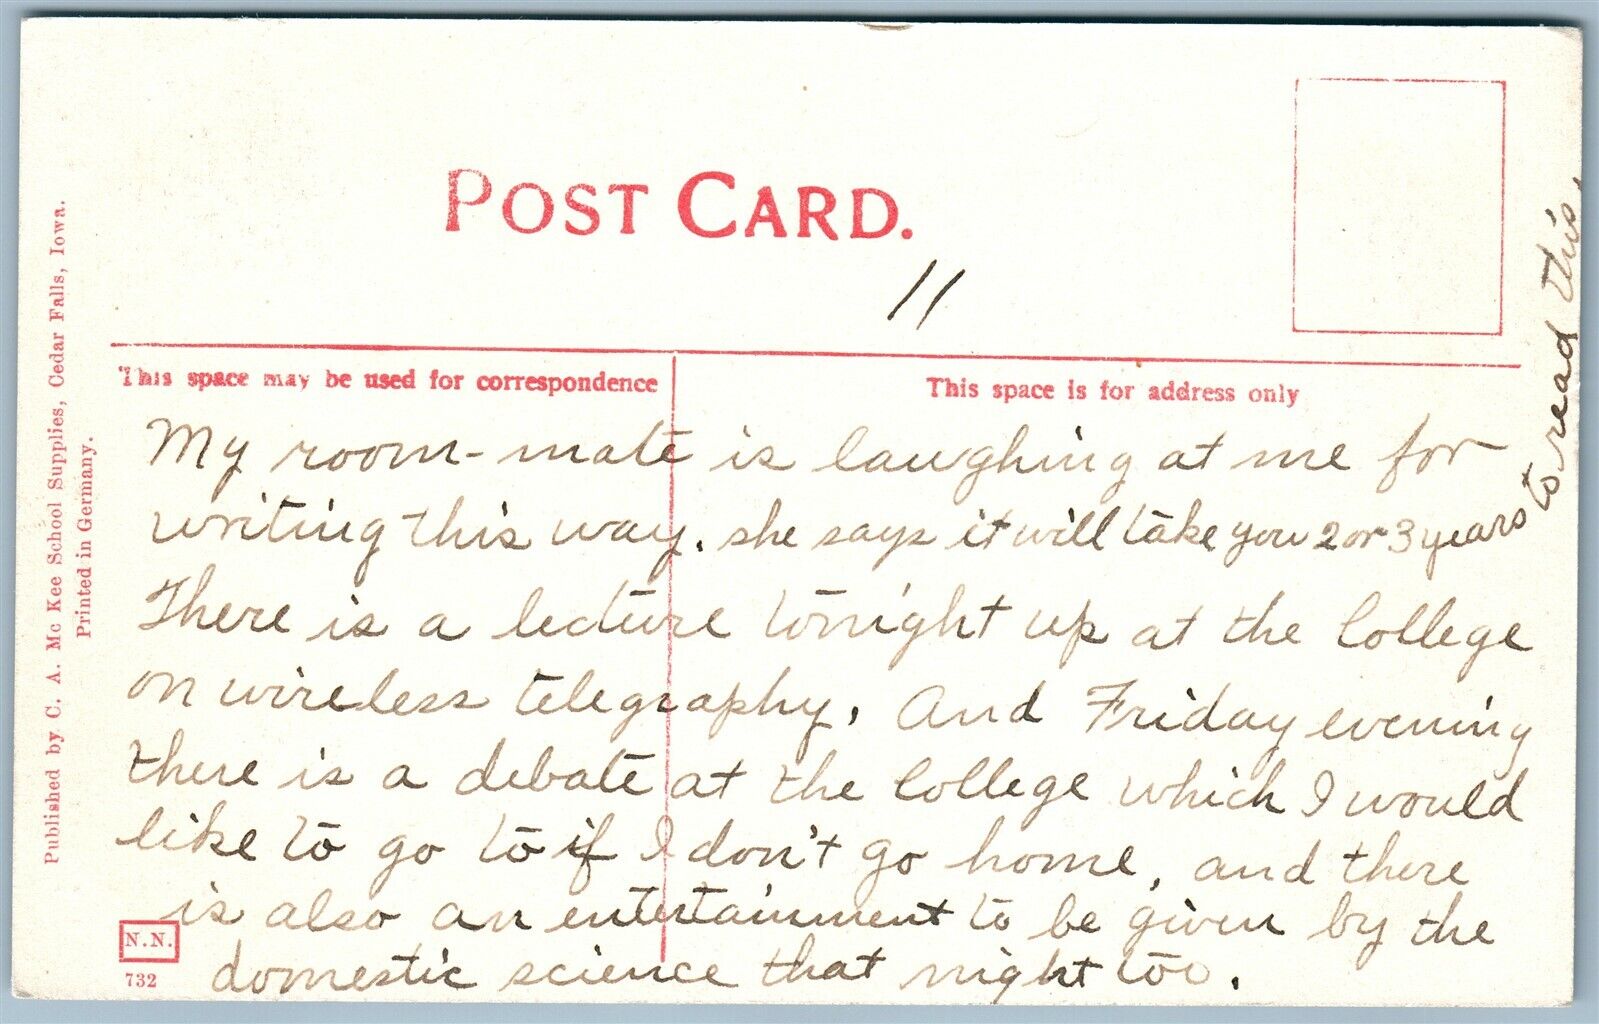 POST CARD.
11
This space may be used for correspondence
This space is for address only
My room-mate is laughing at me for
writing this way. she says it will take you 2 or 3 years to read this.
There is a lecture tonight up at the College
on wireless telegraphy. And Friday evening
there is a debate at the College which I would
like to go to if I don't go home, and there
is also an entertainment to be given by the
domestic science that night too.
Published by C. A. Mc Kee School Supplies, Cedar Falls, Iowa.
Printed in Germany.
N.N.
732